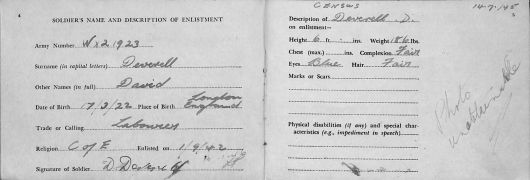 4
SOLDIER'S NAME AND DESCRIPTION OF ENLISTMENT
Army Number Wx21923
Surname (in capital letters) Deverell
Other Names (in full) David
Date of Birth 7/3/22 Place of Birth London England
Trade or Calling Labourer
Religion C of E Enlisted on 1/9/42
Signature of Soldier
CENSUS
14-7-'45
5
Description of Deverell D.
on enlistment—
Height 6 ft. ins. Weight 186 lbs.
Chest (max.) ins. Complexion Fair
Eyes Blue Hair Fair
Marks or Scars
Photo unobtainable
Physical disabilities (if any) and special char-
acteristics (e.g., impediment in speech)